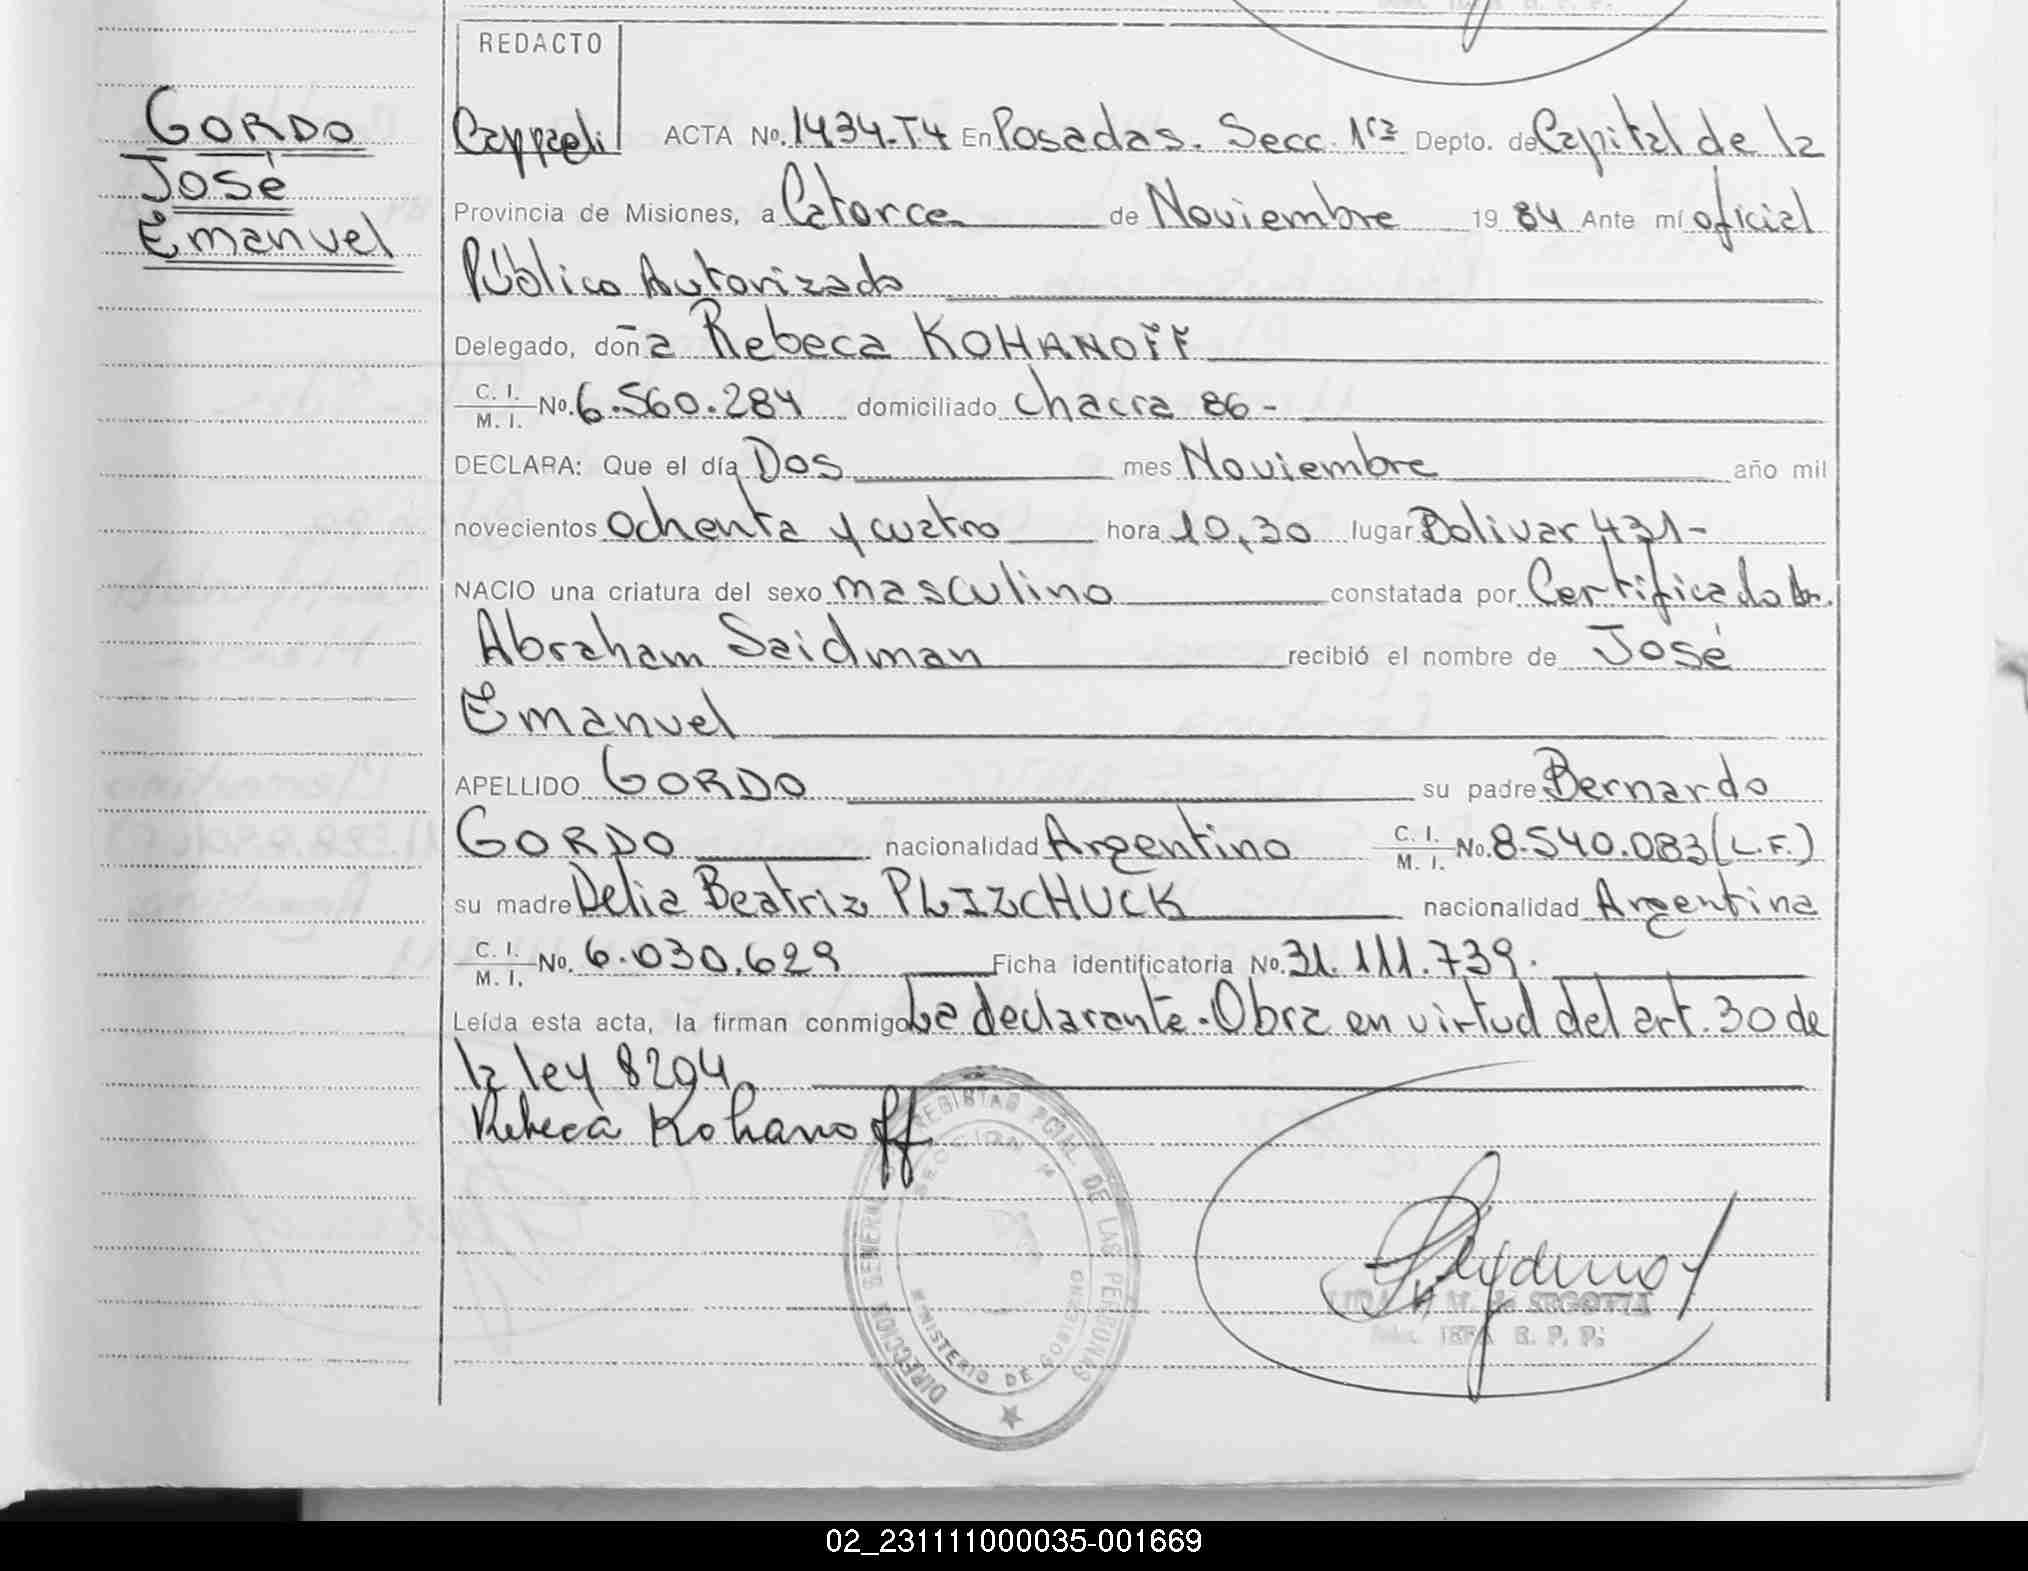 REDACTO
GORDO
José
Emanuel
Cappaeli ACTA No. 1434-T4 En Posadas. Secc. 1ra Depto. de Capital de la
Provincia de Misiones, a Catorce de Noviembre 1984 Ante mí oficial
Público Autorizado
Delegado, doña Rebeca KOHANOFF
C. I.
M. I. No. 6.560.284 domiciliado chacra 86-
DECLARA: Que el día Dos mes Noviembre año mil
novecientos ochenta y cuatro hora 10,30 lugar Bolivar 431-
NACIO una criatura del sexo masculino constatada por Certificado Dr.
Abraham Saidman recibió el nombre de José
Emanuel
APELLIDO GORDO su padre Bernardo
GORDO nacionalidad Argentino C. I. M. I. No. 8.540.083 (L.F.)
su madre Delia Beatriz PLIZCHUCK nacionalidad Argentina
C. I.
M. I. No. 6.030.629 Ficha identificatoria No. 31.111.739.
Leída esta acta, la firman conmigo La declarante. Obra en virtud del art. 30 de
la ley 8204
Rebeca Kohanoff
DIRECCION GENERAL REGISTRO PCIAL. DE LAS PERSONAS
SECCION 1ª
MINISTERIO DE GOBIERNO
M. de SEGOVIA
JEFA R. P. P.
02_231111000035-001669